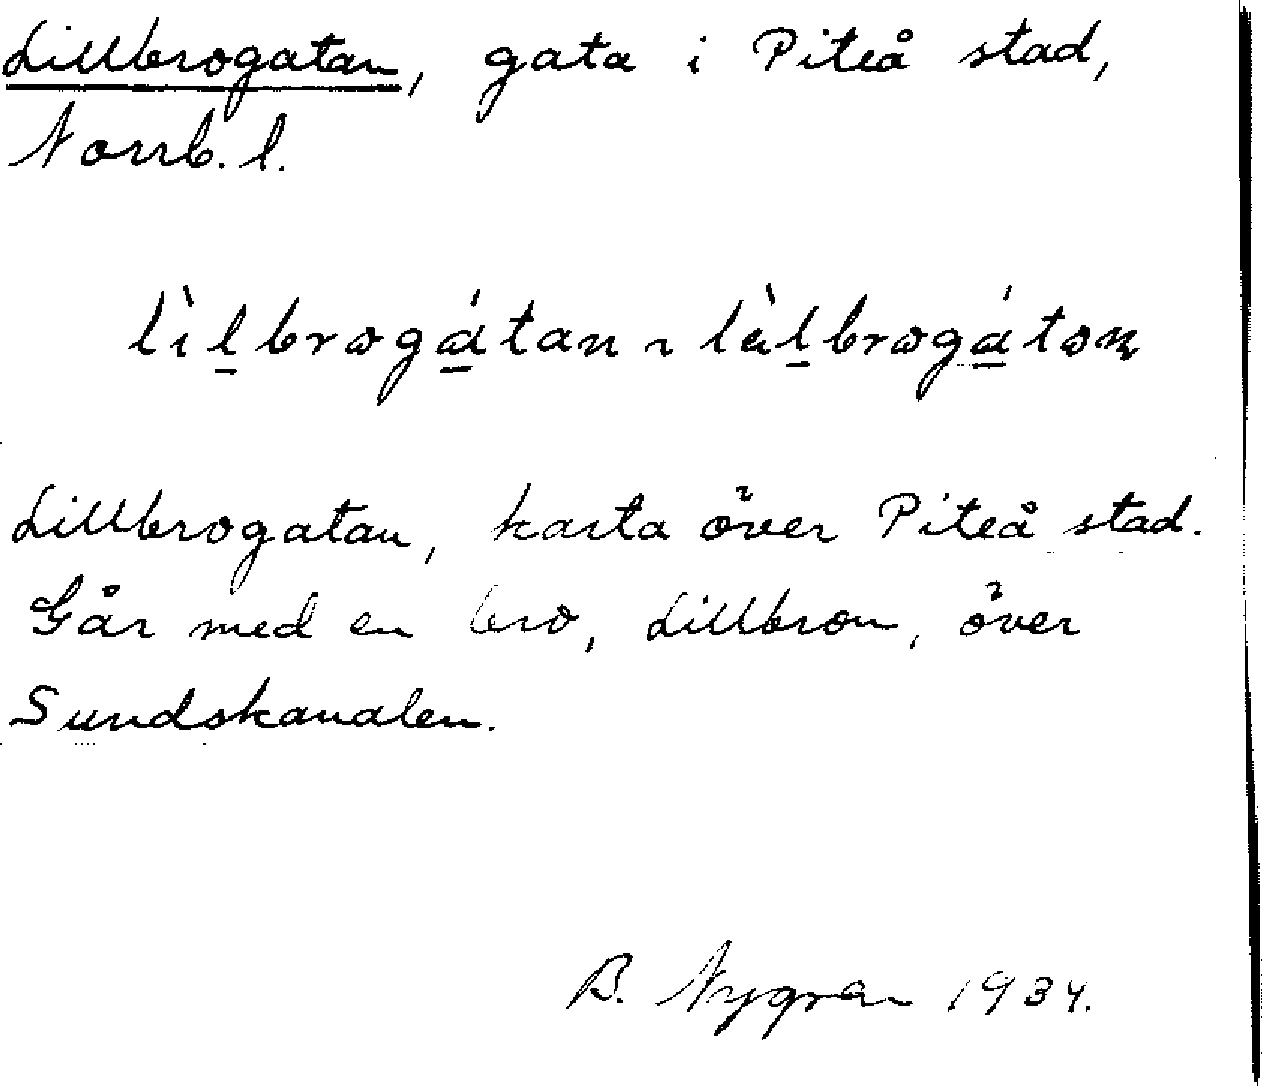 Lillbrogatan, gata i Piteå stad,
Norrb. l.
lìl̲brogá̲tan ~ làl̲brogá̲ton
Lillbrogatan, karta över Piteå stad.
Går med en bro, Lillbron, över
Sundskanalen.
B. Nygren 1934.